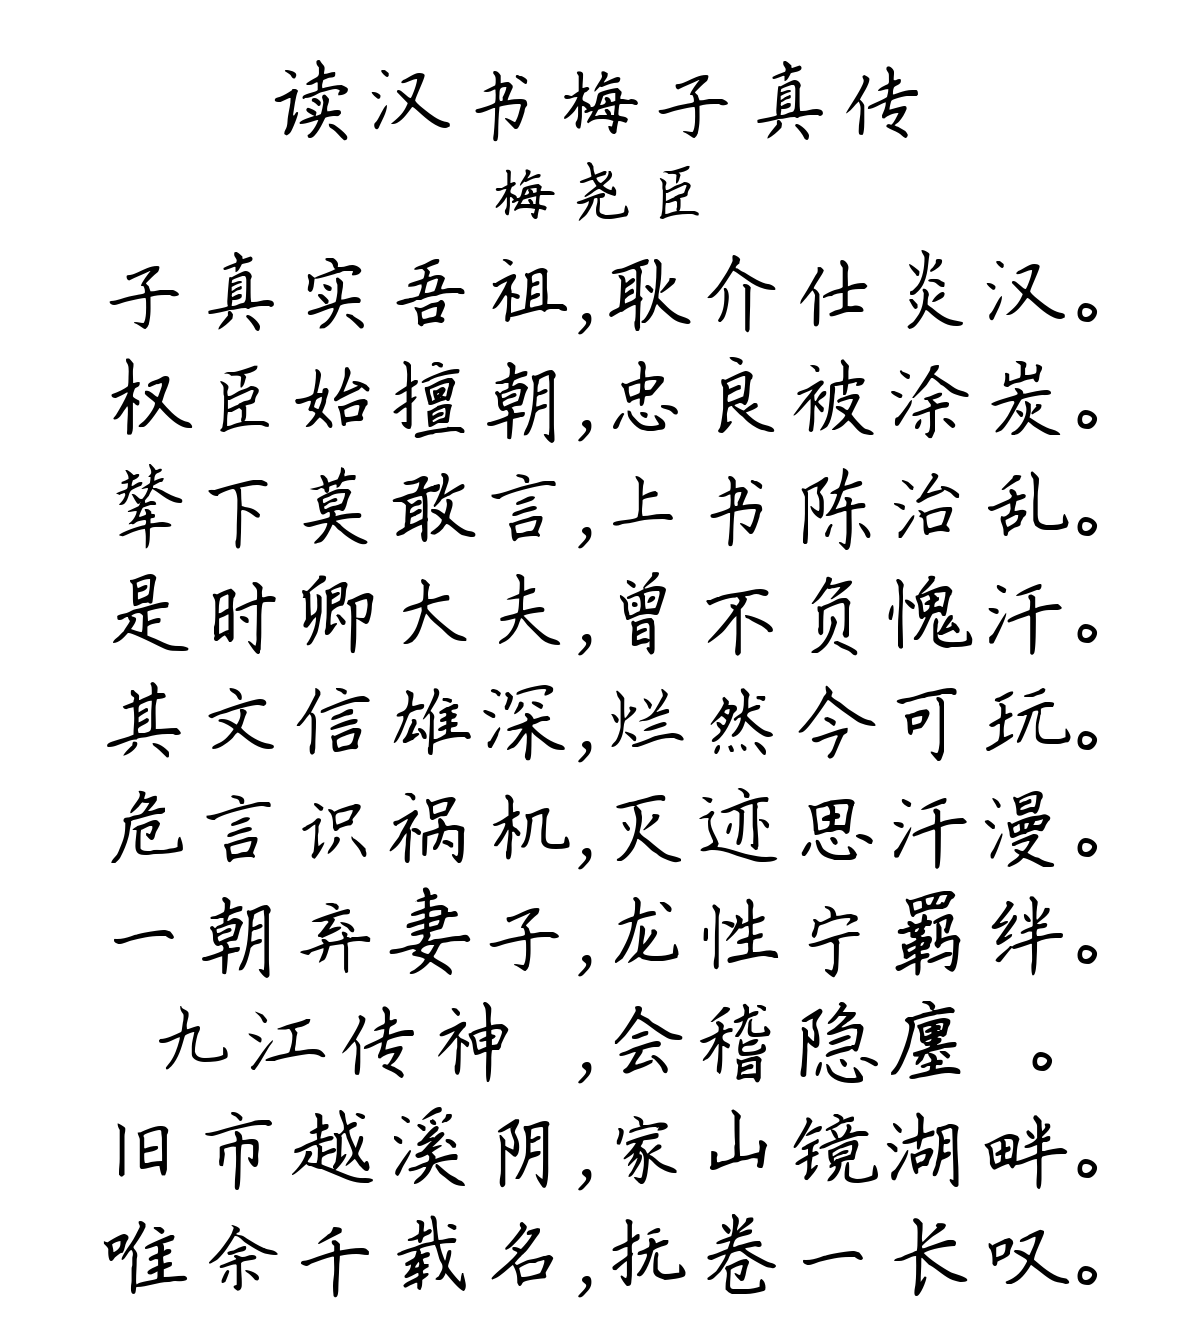 读汉书梅子真传
梅尧臣
子真实吾祖,耿介仕炎汉。
权臣始擅朝,忠良被涂炭。
辇下莫敢言,上书陈治乱。
是时卿大夫,曾不负愧汗。
其文信雄深,烂然今可玩。
危言识祸机,灭迹思汗漫。
一朝弃妻子,龙性宁羁绊。
九江传神 ,会稽隐廛 。
旧市越溪阴,家山镜湖畔。
唯余千载名,抚卷一长叹。